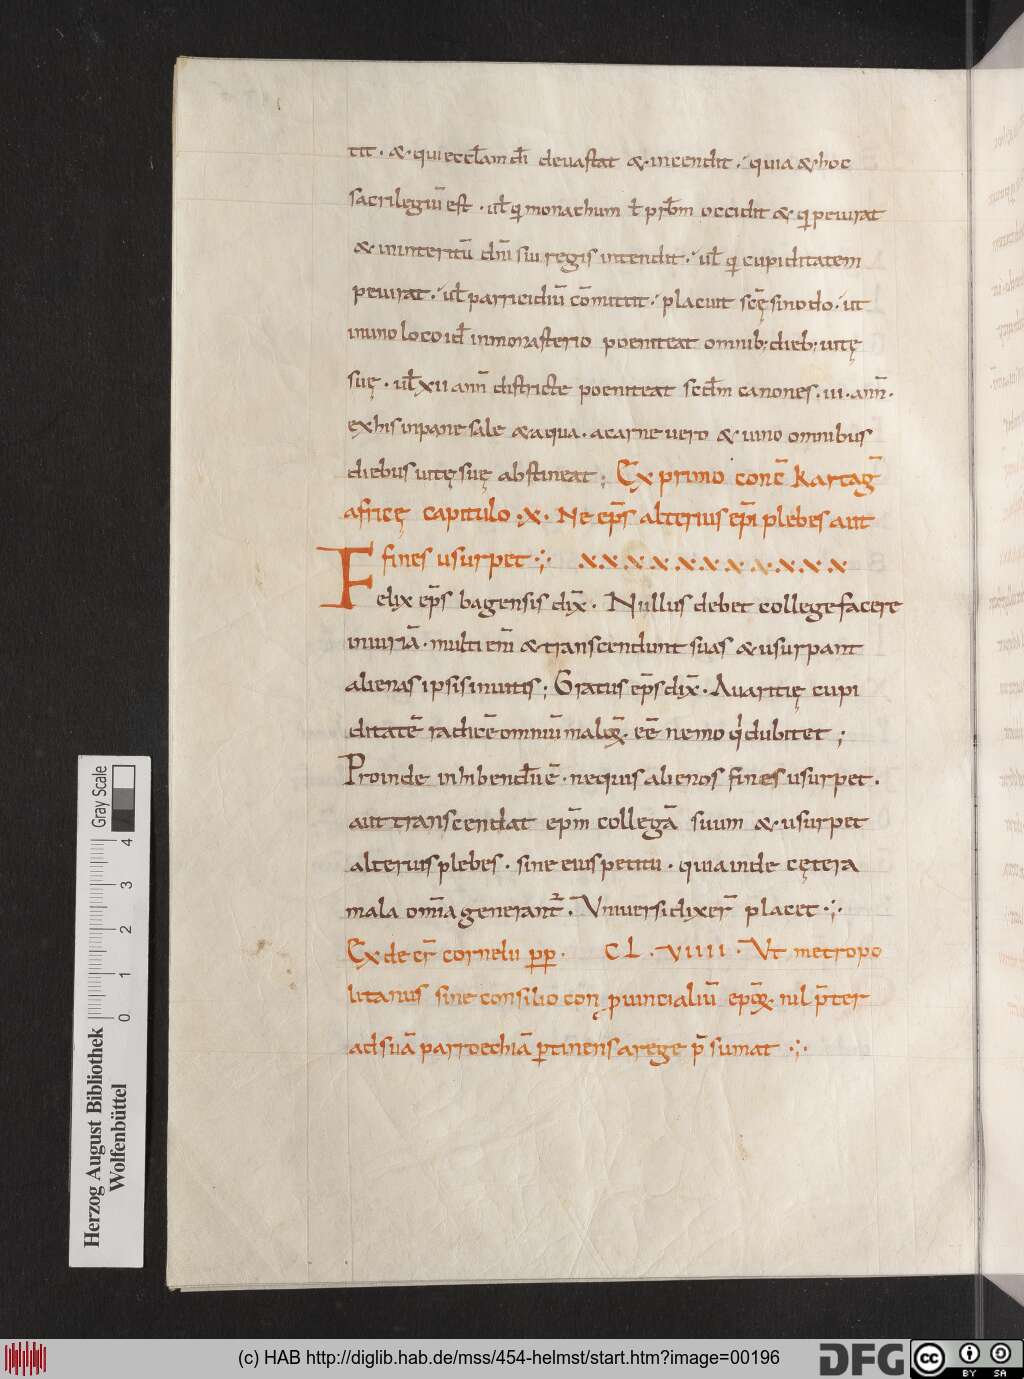 tit · & · qui eccl̄am dī deuastat & · incendit ·́ quia & hoc
sacrilegiū est · ul̄ q̨ monachum ł pr̄bm occidit & q̨ peiurat
& ininteritū dn̄i sui regis intendit ·́ ul̄ q̨ cupiditatem
peiurat ·́ ul̄ parricidiū cōmittit ·́ placuit scę̄ sinodo · ut
inuno loco id̄ inmonasterio poeniteat omnib; dieb; uitę
suę · ul̄ xii ann̄ districte poeniteat secd̄m canones · iii · ann̄ ·
exhis inpane sale & aqua · acarne uero & uino omnibus
diebus uitę suę abstineat ; Ex primo conc̄ kartaḡ
africę capitulo · x · Ne ep̄s alterius ep̄i plebes aut
fines usurpet ·:·
Felix ep̄s bagensis dix̄ · Nullus debet collegę facere
iniuriā · multi enī & transcendunt suas & usurpant
alienas ipsis inuitis ; Gratus ep̄s dix̄ · Auaritię cupi
ditatē radicē omniū maloꝝ · eē nemo q̇ dubitet ;
Proinde inhibendū ē · nequis alienos fines usurpet ·
aut transcendat ep̄m collegā suum & usurpet
alterius plebes · sine eius petitu · quia inde cętera
mala om̄ia generant᷑ · Vniuersi dixer̄ placet ·:·
Ex decr̄ cornelii pp · CL · VIIII · Vt metropo
litanus sine consilio con ꝓuincialiū epōꝝ · nil p̄ter
ad suā parroechiā ꝑtinens arege p̄sumat ·:·
Herzog August Bibliothek
Wolfenbüttel
Gray Scale
0 1 2 3 4
(c) HAB http://diglib.hab.de/mss/454-helmst/start.htm?image=00196
DFG
cc BY SA